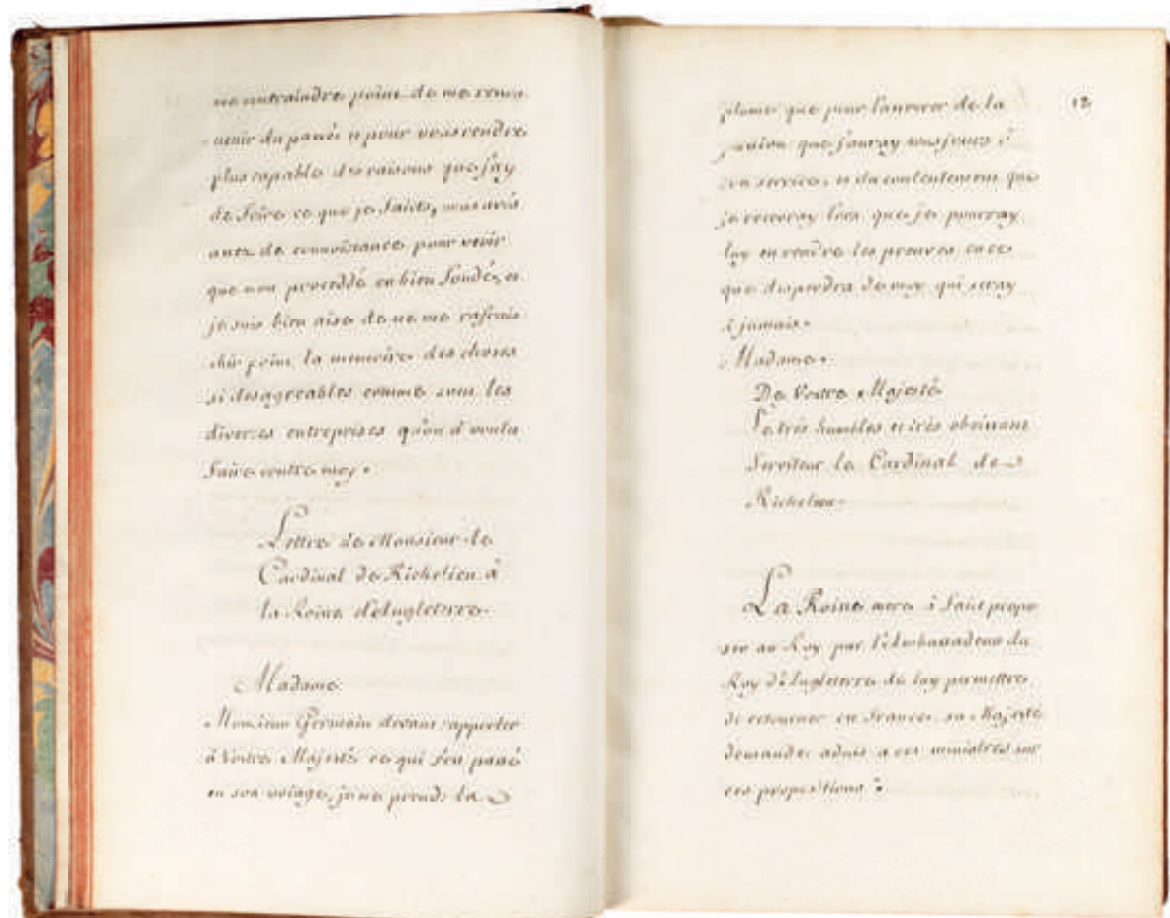 me contraindre point de me souve
-nir du passé et pour vous rendre
plus capable des raisons que j'ay
de faire ce que je faicts, vous avés
assez de connoissance pour venir
que mon proceddé en bien fondé, et
je suis bien aise de ne me rafrais
chir point la memoire des choses
si desagreables comme sont les
diverses entreprises qu'on à voulu
faire contre moy.
Lettre de Monsieur le
Cardinal de Richelieu à
la Roine d'Angleterre.
Madame
Monsieur Germain devant rapporter
à Vostre Majesté ce qui s'est passé
en son voiage, je ne prends la
12
plume que pour l'asseurer de la
passion que j'auray tousjours à
son service, et du contentement que
je recevray lors que je pourray
luy en rendre les preuves en ce
que despendra de moy qui seray
à jamais.
Madame.
De Vostre Majesté
Le très humbles et très obeissant
Serviteur le Cardinal de
Richelieu.
La Roine mere à faict propo
ser au Roy par l'Ambassadeur du
Roy d'Angleterre de luy permettre
de retourner en France. sa Majesté
demande advis a ces ministres sur
ces propositions.